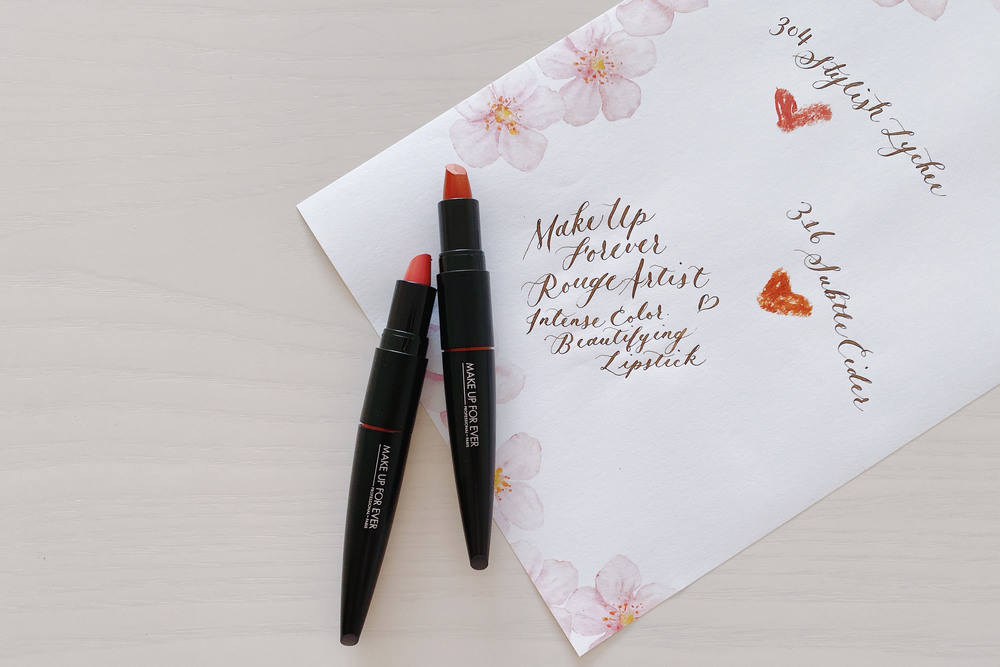 304 Stylish Lychee
316 Subtle Cider
Make Up
Forever
Rouge Artist
Intense Color
Beautifying
Lipstick
MAKE UP FOR EVER
PROFESSIONAL - PARIS
MAKE UP FOR EVER
PROFESSIONAL - PARIS